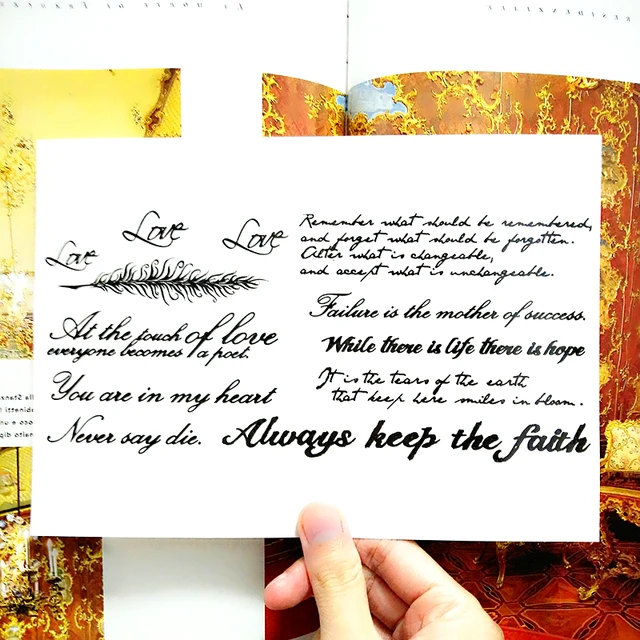 Love
Love
Love
At the touch of love
everyone becomes a poet.
You are in my heart
Never say die.
Remember what should be remembered,
and forget what should be forgotten.
Alter what is changeable,
and accept what is unchangeable.
Failure is the mother of success.
While there is life there is hope
It is the tears of the earth
that keep here smiles in bloom.
Always keep the faith